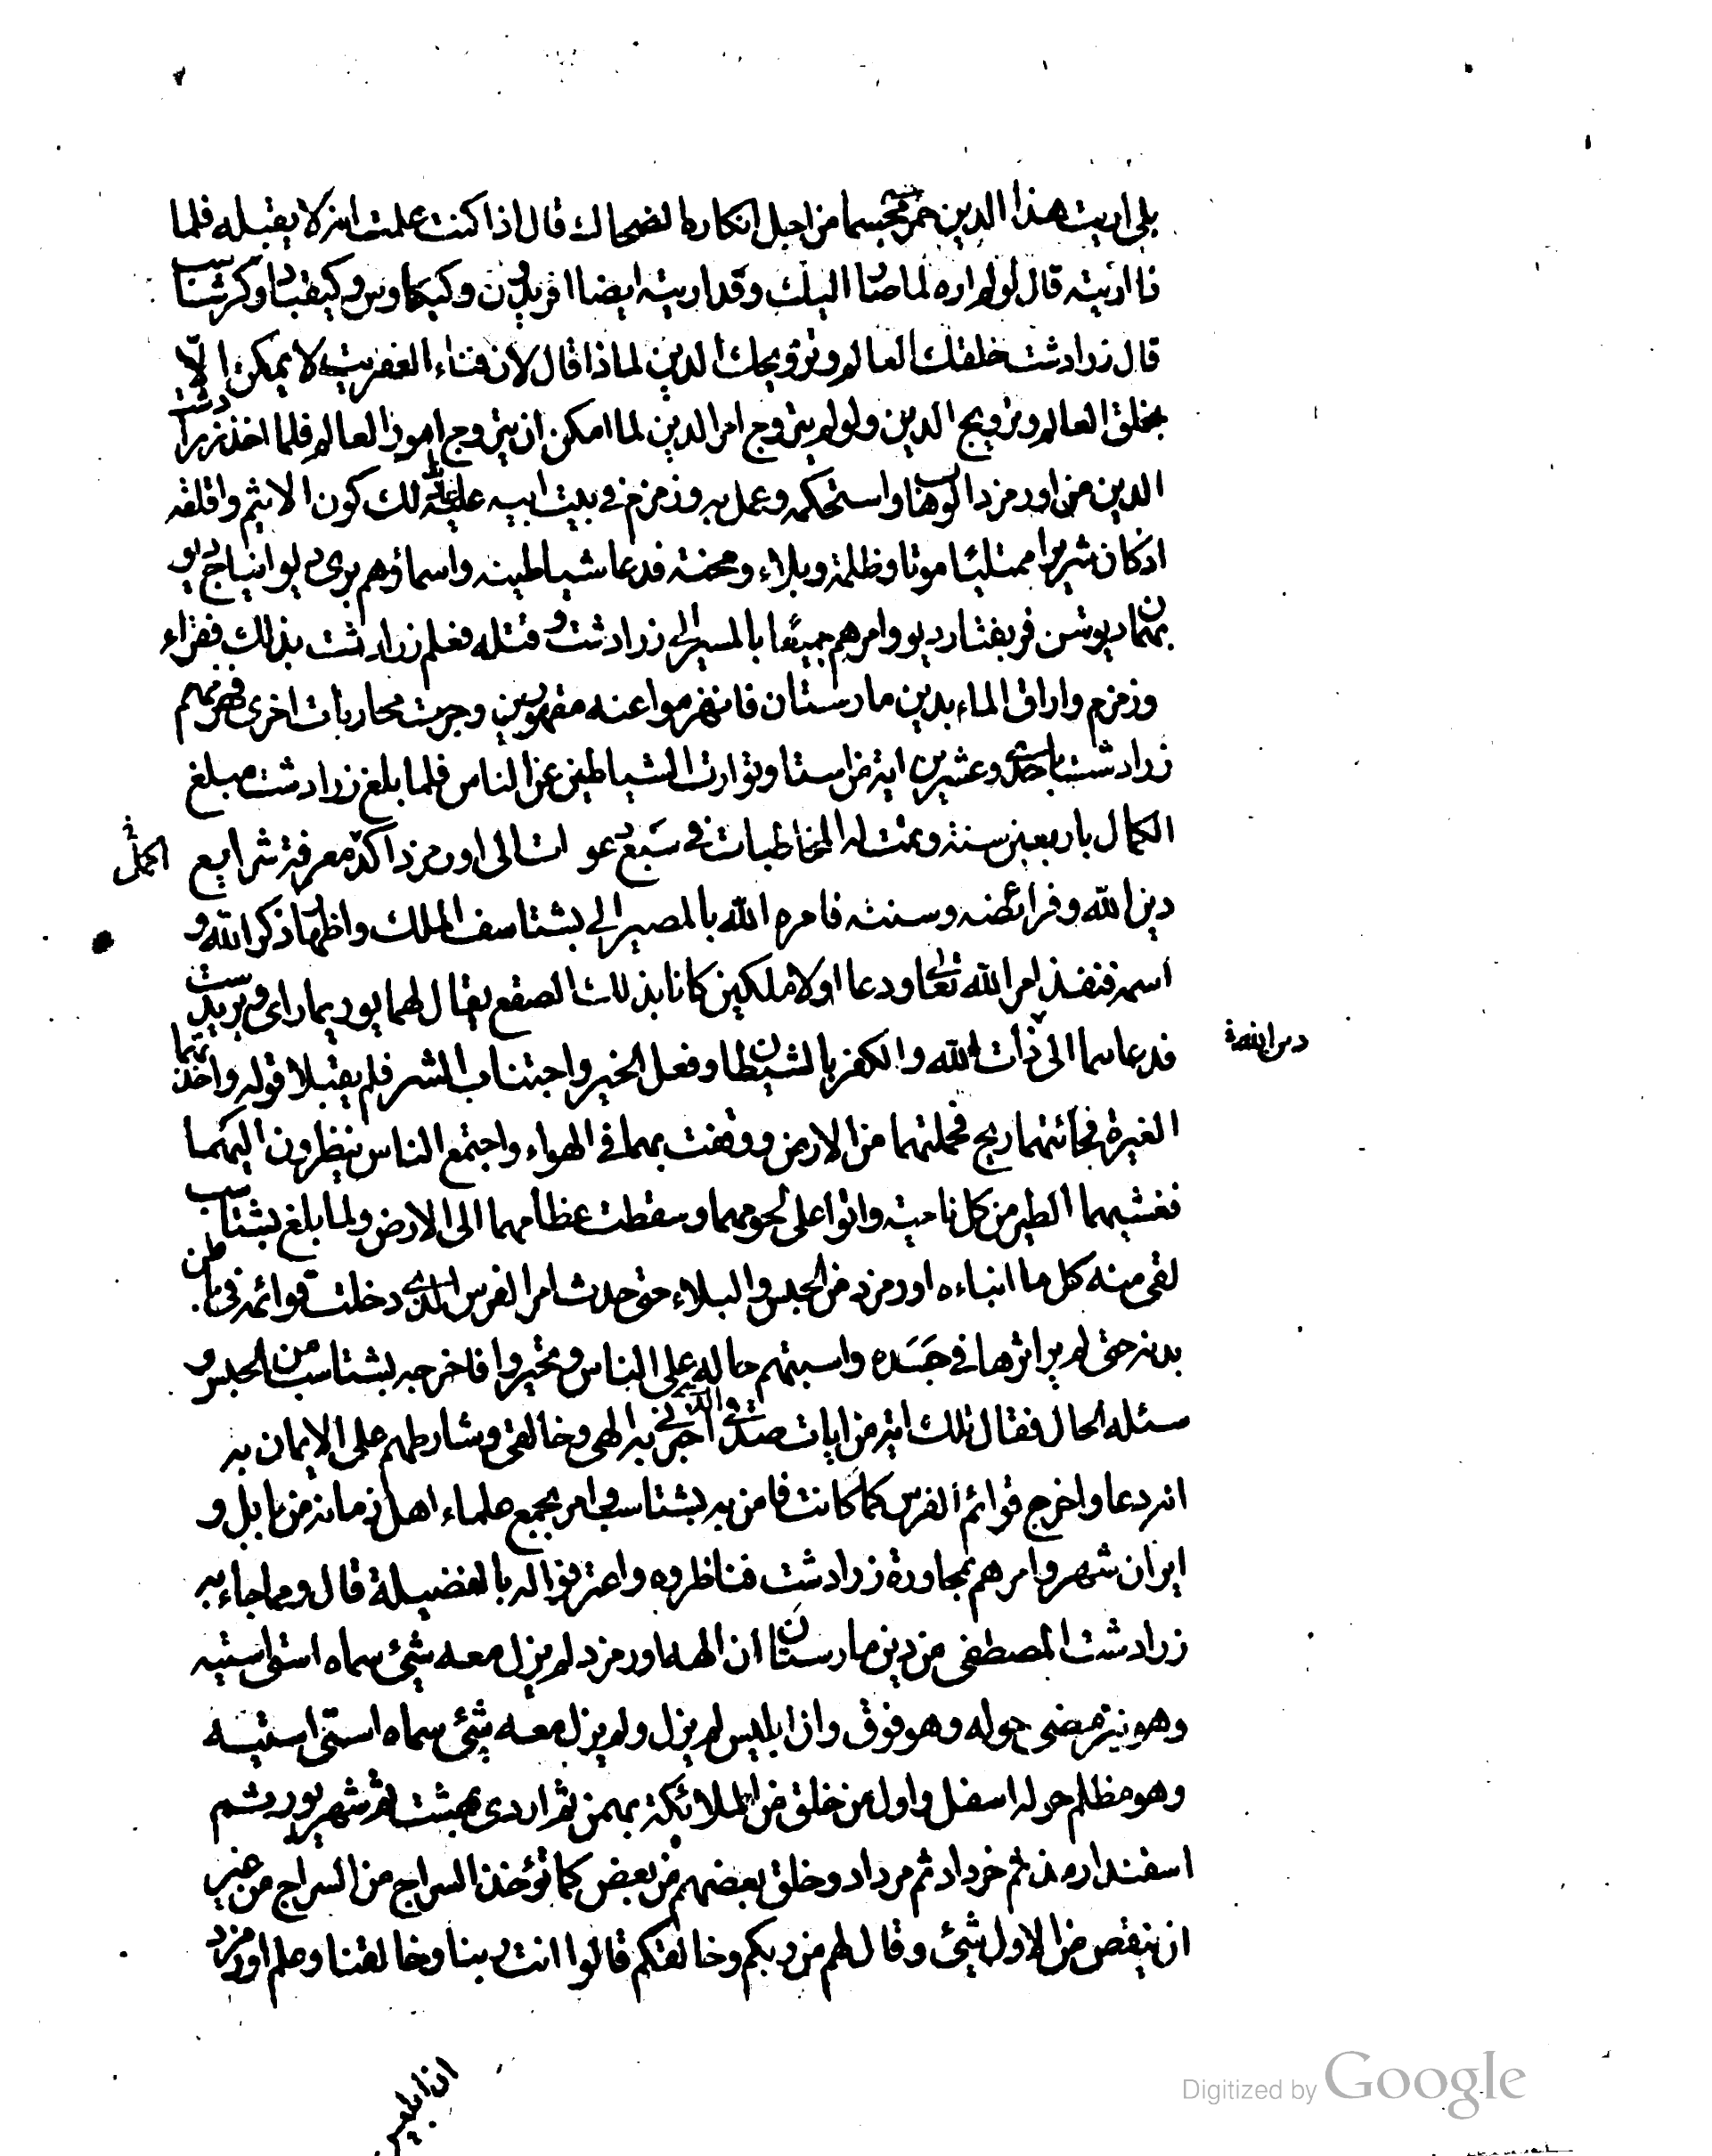 بلى اريت هذا الدين جم من اجل انكاره الضحاك قال اذا كنت علمت انه لا يقبله فلما
ذا اريته قال لو لم اره لما صار اليك وقد اريته ايضا افريدون وكيكاوس وكيقباد وكرشتاسب
قال زرادشت خلقك العالم وترويجك الدين لماذا قال لان فناء العفريت لا يمكن الّا
بخلق العالم وترويج الدين ولو لم يتروج امر الدين لما امكن ان يتروج امور العالم فلما اخذ زرادشت
الدين من اورمزد الوهاب واستحكمه وعمل به وزمزم في بيت ابيه ذلك كون الاثيم واقلقه
اذ كان شريرا ممتلئا موتا وظلمة وبلاء ومحنة فدعا شياطينه واسماؤهم بري ديو انياج ديو
بهمان ديوشن فريفتار ديو وامرهم جميعًا بالمسير الى زرادشت وقتله فعلم زرادشت بذلك فقراء
وزمزم واراق الماء بدين مارستان فانهزموا عنه مقهورين وجرت محاربات اخرى فهزمهم
زرادشت باحدى وعشرين اية من استا وتوارت الشياطين عن الناس فلما بلغ زرادشت مبلغ
الكمال باربعين سنة وتمت له المخاطبات في سبع عو ات الى اورمزد اكدّ معرفة شرايع
دين الله وفرائضه وسننه فامره الله بالمصير الى بشتاسف الملك واظهار ذكر الله و
اسمه فنفذ امر الله تعالى ودعا اولا ملكين كانا بذلك الصقع يقال لهما يوربماراى وبريدست
فدعاهما الى ذات الله والكفر بالشيطان وفعل الخير واجتناب الشر فلم يقبلا قوله واخذتهما
الغيرة فجائتهما ريح فحملتهما من الارض ووقفت بهما في الهواء واجتمع الناس ينظرون اليهما
فغشيهما الطير من كل ناحية واتوا على لحومهما وسقطت عظامهما الى الارض ولما بلغ بشتاسب
لقى منه كل ما انباءه اورمزد من الحبس والبلاء حتى حدث امر الفرس الذي دخلت قوائمه في باطن
بدنه حتى لم ير اثرها في جَسَده واستبهم حاله على الناس وتحيروا فاخرجه بشتاسب من الحبس و
سئله الحال فقال تلك اية من ايات صدقى الذي اخبرني به الهى وخالقى وشارطهم على الايمان به
انه دعا واخرج قوائم الفرس كما كانت فامن به بشتاسب وامر بجمع علماء اهل زمانه من بابل و
ايران شهر وامرهم بمحاورة زرادشت فناظروه واعترفوا له بالفضيلة قال ومما جاء به
زرادشت المصطفى من دين مارستان ان اله اورمزد لم يزل معه شئ سماه استى استيه
وهو نير مضى حوله وهو فوق وان ابليس لم يزل ولم يزل معه شئ سماه استى استيه
وهو مظلم حوله اسفل واول من خلق من الملائكة بهمن ثم اردى بهشت ثم شهريور ثم
اسفندارمذ ثم خرداد ثم مرداد وخلق بعضهم من بعض كما تؤخذ السراج من السراج من غير
ان ينقص من الاول شئ وقال لهم من ربكم وخالقكم قالوا انت ربنا وخالقنا وعلم اورمزد
ان ابليس
Digitized by Google